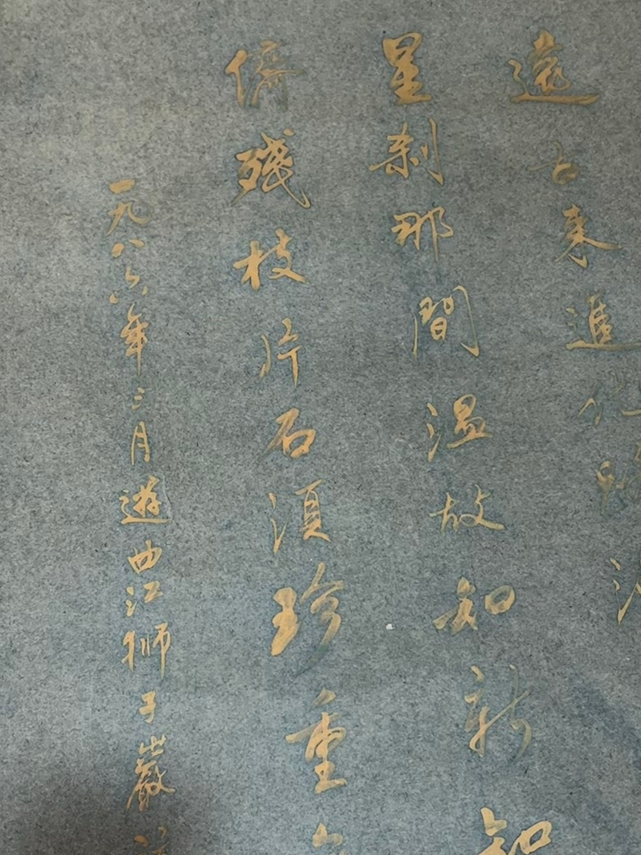 遠古来進化
星刹那間温故知新知
儕殘枝片石須珍重
一九八六年三月遊曲江獅子巖